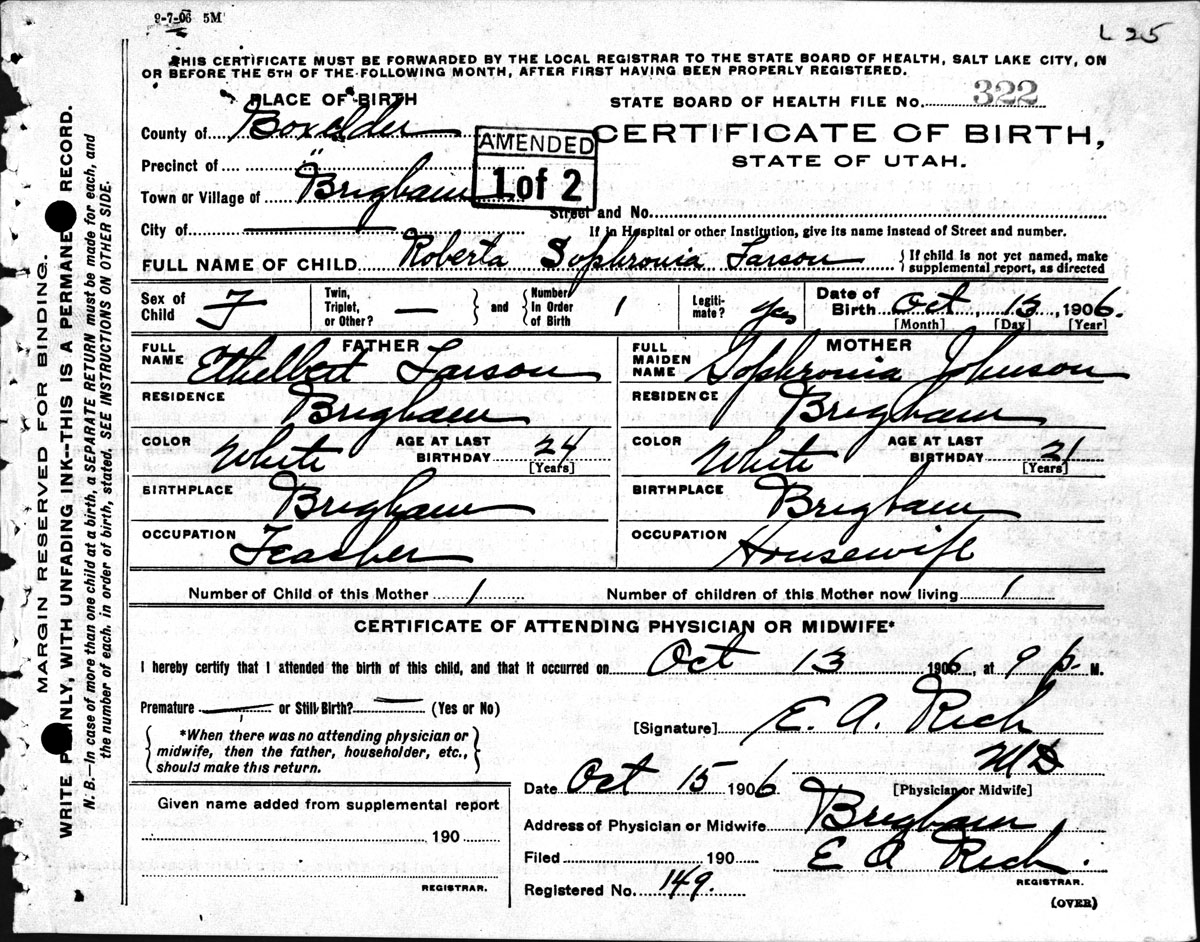 9-7-06 5M
L 25
THIS CERTIFICATE MUST BE FORWARDED BY THE LOCAL REGISTRAR TO THE STATE BOARD OF HEALTH, SALT LAKE CITY, ON
OR BEFORE THE 5TH OF THE FOLLOWING MONTH, AFTER FIRST HAVING BEEN PROPERLY REGISTERED.
PLACE OF BIRTH
STATE BOARD OF HEALTH FILE NO. 322
County of Boxelder
AMENDED
1 of 2
CERTIFICATE OF BIRTH,
STATE OF UTAH.
Precinct of "
Town or Village of Brigham
Street and No.
City of —
If in Hospital or other Institution, give its name instead of Street and number.
FULL NAME OF CHILD Roberta Sophronia Larson
{ If child is not yet named, make supplemental report, as directed
Sex of Child F
Twin, Triplet, or Other? — } and { Number In Order of Birth 1
Legitimate? Yes
Date of Birth Oct 13, 1906.
[Month] [Day] [Year]
FATHER
FULL NAME Ethelbert Larson
MOTHER
FULL MAIDEN NAME Sophronia Johnson
RESIDENCE Brigham
RESIDENCE Brigham
COLOR White AGE AT LAST BIRTHDAY 24 [Years]
COLOR White AGE AT LAST BIRTHDAY 21 [Years]
BIRTHPLACE Brigham
BIRTHPLACE Brigham
OCCUPATION Teacher
OCCUPATION Housewife
Number of Child of this Mother 1
Number of children of this Mother now living 1
CERTIFICATE OF ATTENDING PHYSICIAN OR MIDWIFE*
I hereby certify that I attended the birth of this child, and that it occurred on Oct 13 1906, at 9 p. M.
Premature — or Still Birth? — (Yes or No)
[Signature] E. A. Rich
MD
[Physician or Midwife]
{ *When there was no attending physician or
midwife, then the father, householder, etc.,
should make this return. }
Date Oct 15 1906
Given name added from supplemental report
190
REGISTRAR.
Address of Physician or Midwife Brigham
Filed 190
E A Rich.
REGISTRAR.
Registered No. 149.
(OVER)
MARGIN RESERVED FOR BINDING.
WRITE PLAINLY, WITH UNFADING INK--THIS IS A PERMANENT RECORD.
N. B.—In case of more than one child at a birth, a SEPARATE RETURN must be made for each, and
the number of each. in order of birth, stated. SEE INSTRUCTIONS ON OTHER SIDE.